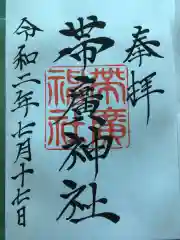 奉拝
帯廣神社
帯廣
神社
令和二年七月十七日